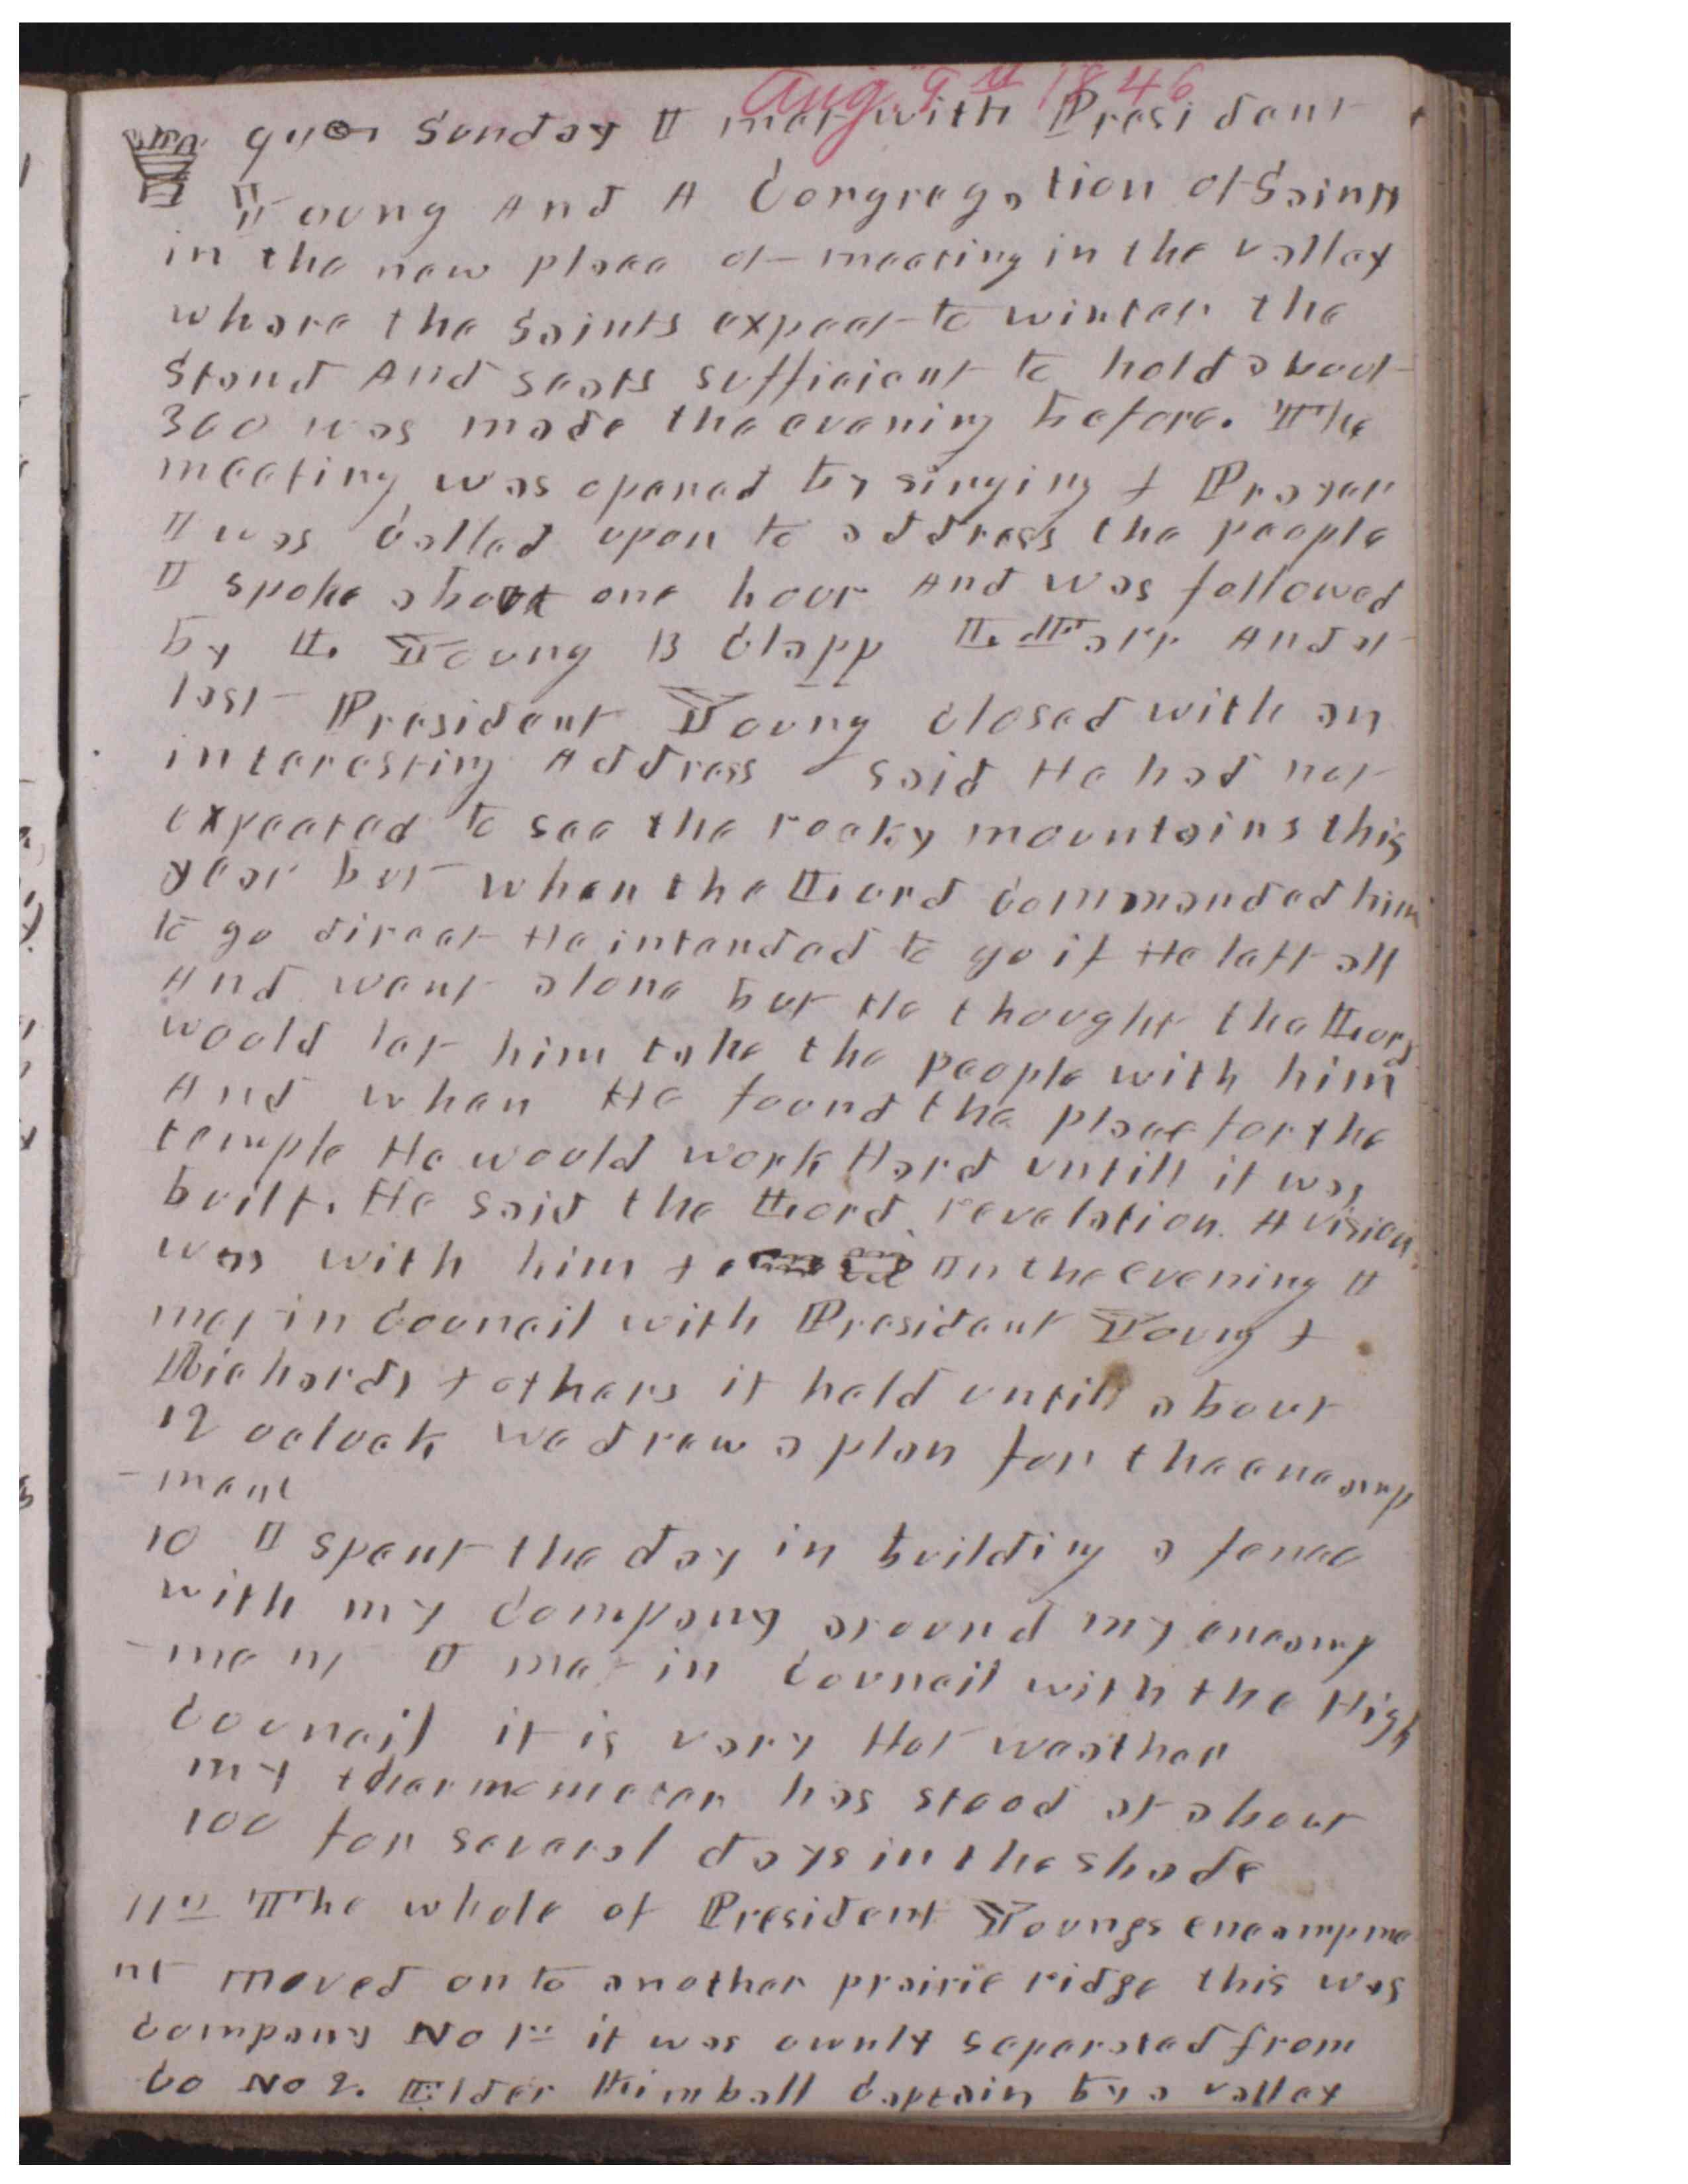 Aug. 9th 1846
9th Sunday I met with President
Young And A Congregation of Saints
in the new place of meeting in the valley
where the Saints expect to winter the
Stand And seats sufficient to hold about
300 was made the evening before. The
meeting was opened by singing & Prayer
I was Called upon to address the people
I spoke about one hour And was followed
by L. Young B Clapp J. Tarr And at
last President Young closed with an
interesting Address said He had not
expected to see the rocky mountains this
year but when the Lord Commanded him
to go direct He intended to go if He left all
And went alone but He thought the Lord
would let him take the people with him
And when He found the place for the
temple He would work Hard untill it was
built. He said the Lord revelation. & vision
was with him & In the evening I
met in Council with President Young &
Richards & others it held untill about
12 oclock we drew a plan for the encamp
-ment
10 I spent the day in building a fence
with my Company around my encamp
-ment I met in Council with the High
Council it is very Hot weather
my thermometer has stood at about
100 for several days in the shade
11th The whole of President Youngs encampme
nt moved on to another prairie ridge this was
Company No 1st it was ownly separated from
Co No 2. Elder Kimball Captain by a valley